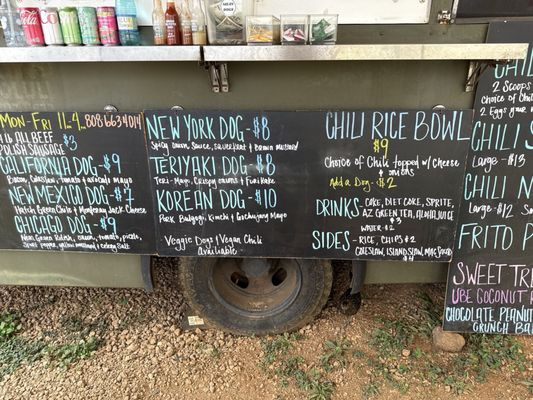 Mon-Fri 11-4 808 6634014
1/4 lb All Beef - $3
Polish Sausage
California Dog - $9
Bacon, Guacamole, Tomato & Avocado Mayo
New Mexico Dog - $7
Hatch Green Chile & Monterey Jack Cheese
Chicago Dog - $9
Neon Green Relish, onion, tomato, pickle,
Sport Pepper, Yellow mustard & Celery Salt
New York Dog - $8
Spicy Onion Sauce, Sauerkraut & Brown Mustard
Teriyaki Dog - $8
Teri-Mayo, Crispy Onions & Furikake
Korean Dog - $10
Pork Bulgogi, Kimchi & Gochujang Mayo
Veggie Dogs & Vegan Chili
Available!
Chili Rice Bowl
$9
Choice of Chili topped w/ cheese
& onions
Add a Dog - $2
Drinks - Coke, Diet Coke, Sprite,
AZ Green Tea, Aloha Juice
$3
Water $2
Sides - Rice, Chips $2
Coleslaw, Island Slaw, Mac Salad
$4
Chili
2 Scoops
Choice of Chili
2 Eggs your
Chili S
Large - $13
Chili N
Large - $12
Frito P
Sweet Tre
Ube Coconut
Chocolate Peanut
Crunch Bar